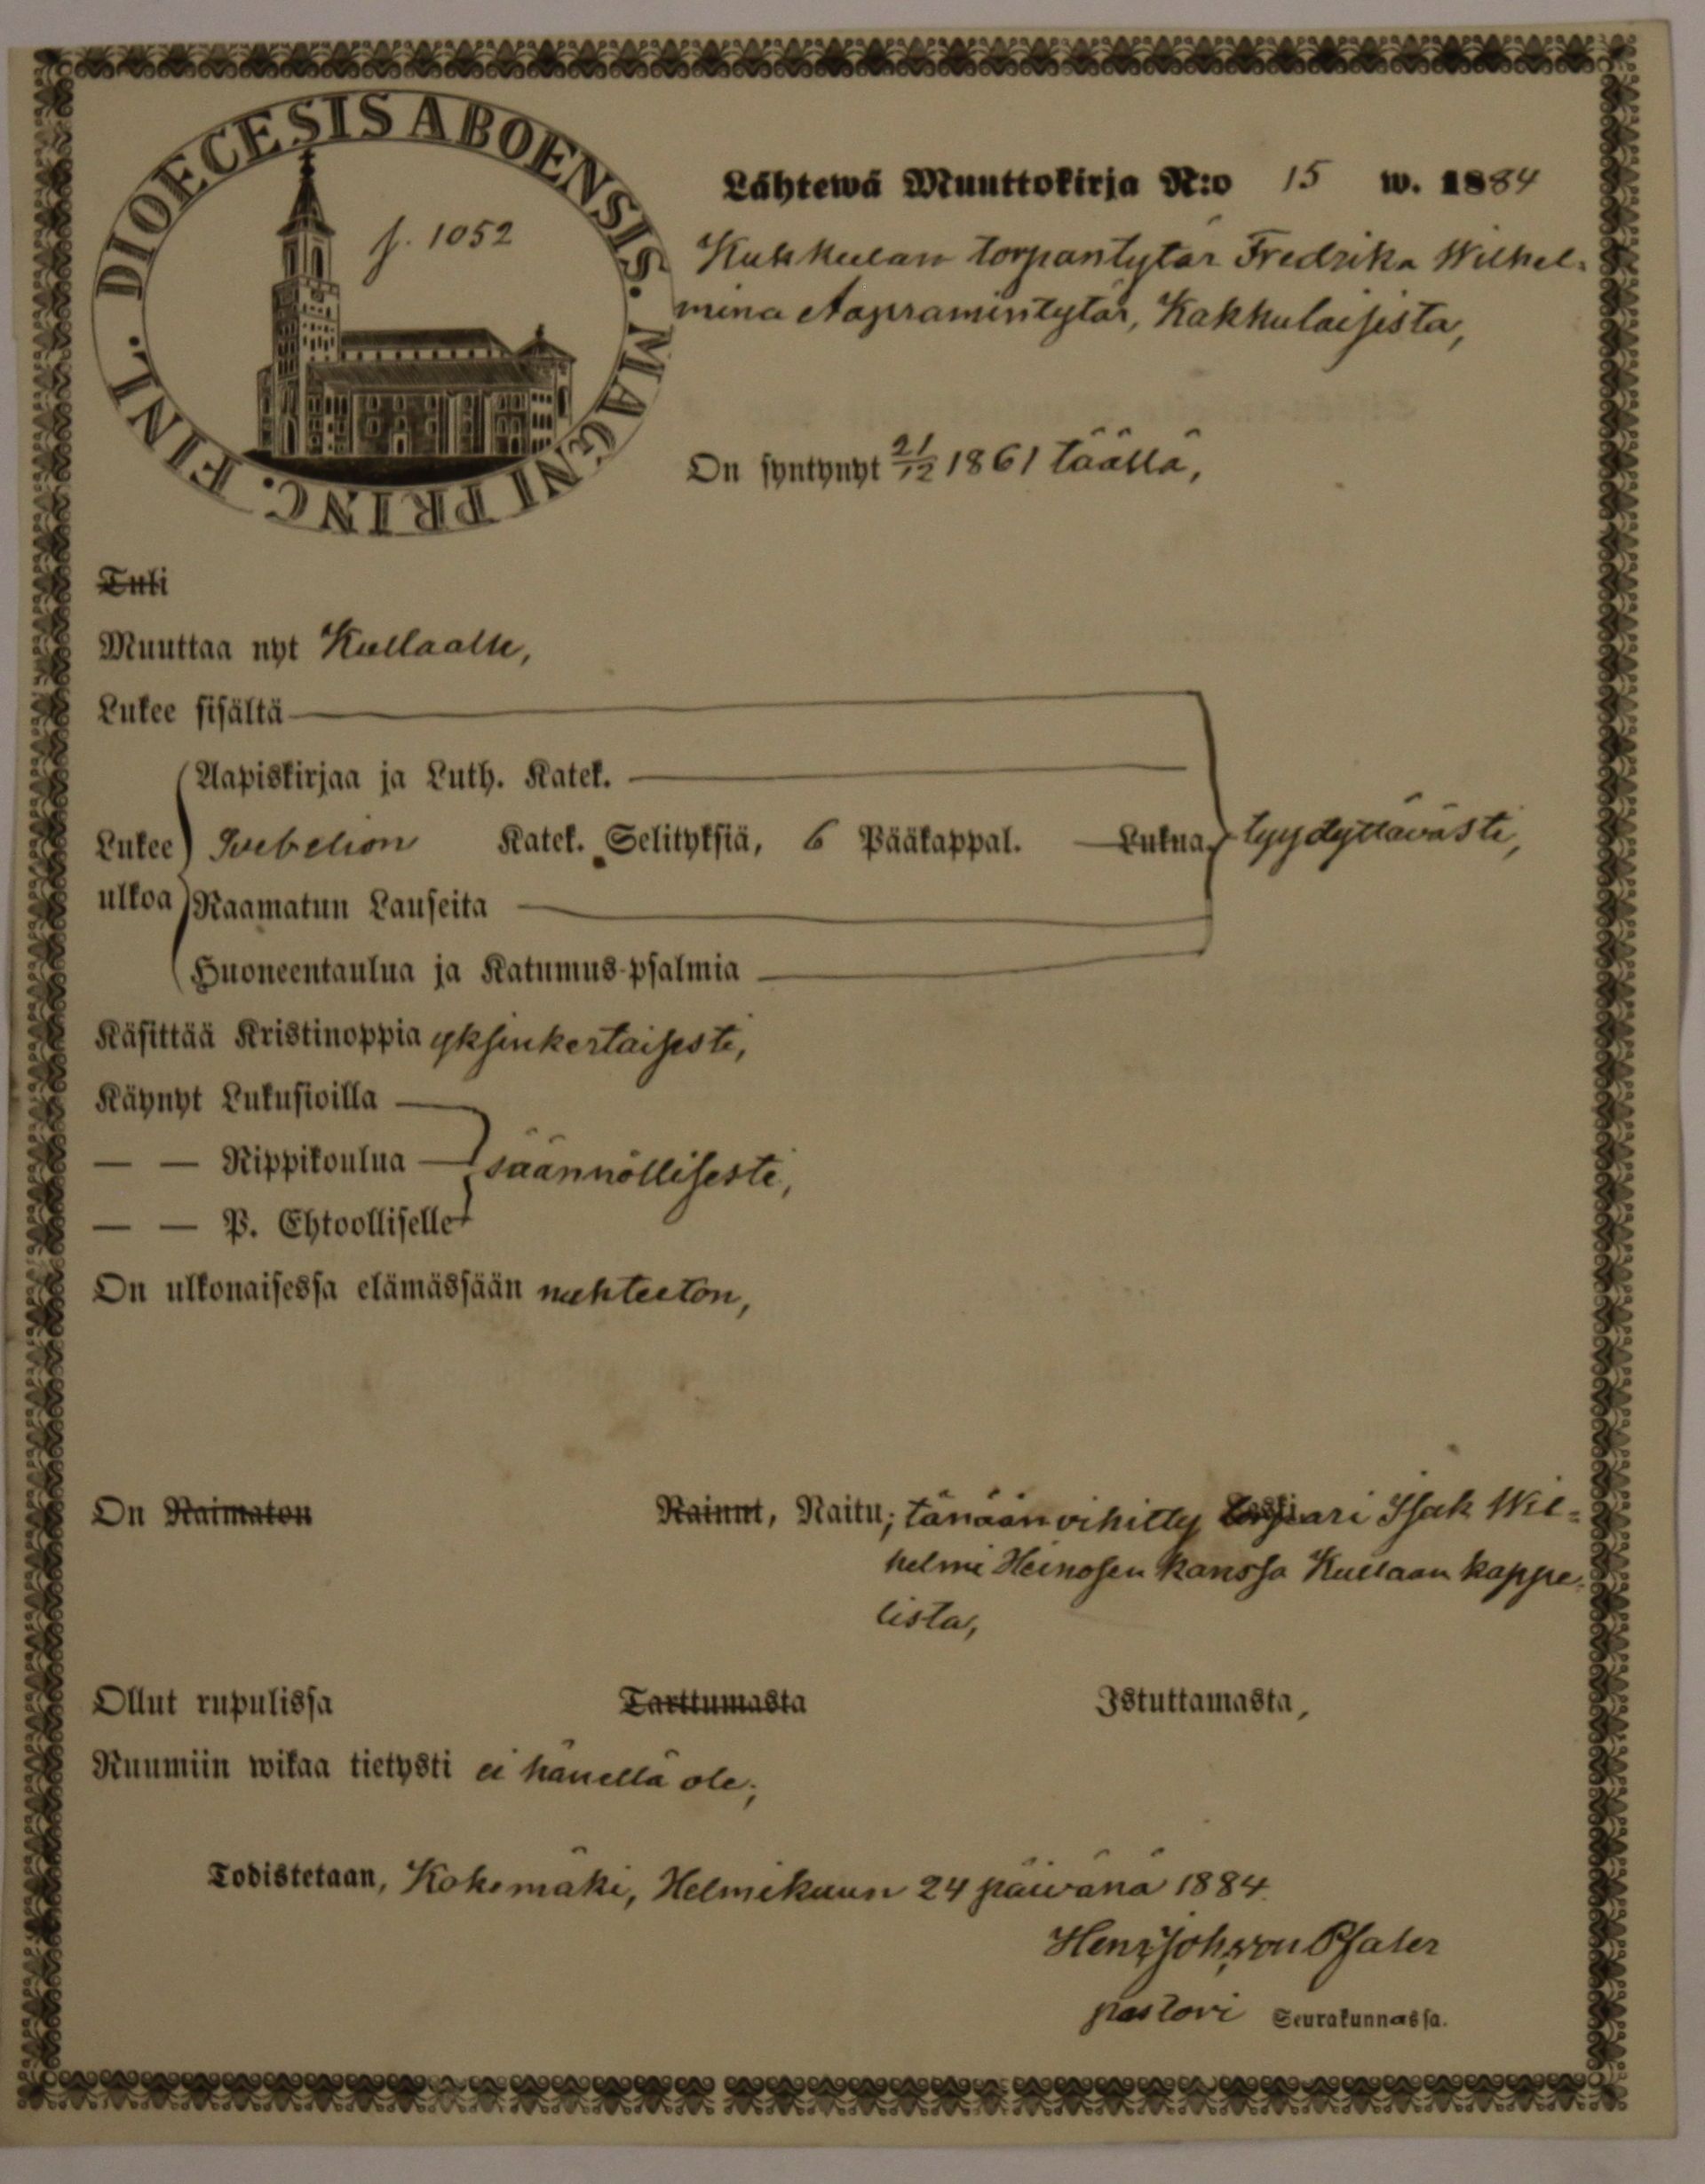 DIOECESIS ABOENSIS. MAGNI PRINC. FINL.
f. 1052
Lähtewä Muuttokirja N:o 15 w. 1884
Kukkulan torpantytär Fredrika Wilhel-
mina Aapramintytär, Kakkulaisista,
On syntynyt 21/12 1861 täällä,
Tuli
Muuttaa nyt Kullaalle,
Lukee sisältä
Aapiskirjaa ja Luth. Katek.
Lukee Svebelion Katek. Selityksiä, 6 Pääkappal. Lukua. tyydyttävästi,
ulkoa Raamatun Lauseita
Huoneentaulua ja Katumus-psalmia
Käsittää Kristinoppia yksinkertaisesti,
Käynyt Lukusioilla
— — Rippikoulua säännöllisesti,
— — P. Ehtoolliselle
On ulkonaisessa elämässään nuhteeton,
On Naimaton Nainut, Naitu; tänään vihitty torppari Isak Wil-
helmi Heinosen kanssa Kullaan kappe-
lista,
Ollut rupulissa Tarttumasta Istuttamasta,
Ruumiin wikaa tietysti ei hänellä ole;
Todistetaan, Kokemäki, Helmikuun 24 päivänä 1884.
Henr. Joh. von Pfaler
pastori Seurakunnassa.